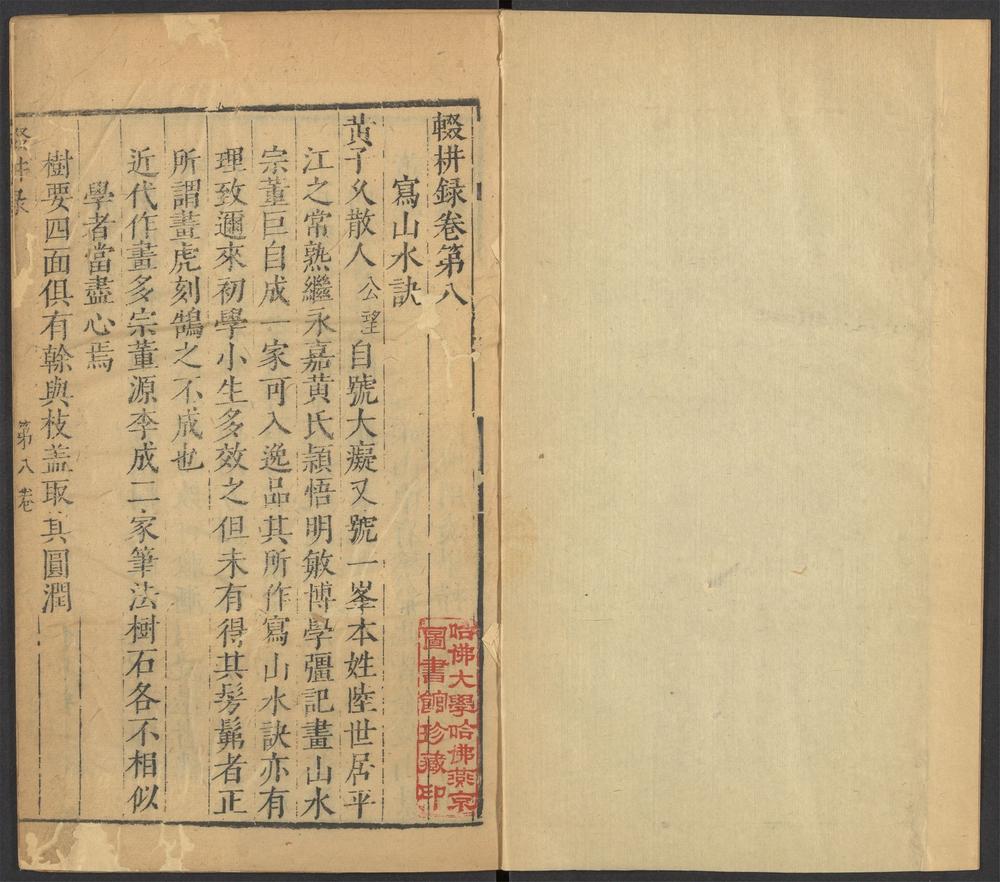 輟耕録卷第八
寫山水訣
黄子久散人公望自號大癡又號一峯本姓陸世居平
江之常熟繼永嘉黄氏穎悟明敏博學彊記畫山水
宗董巨自成一家可入逸品其所作寫山水訣亦有
理致邇來初學小生多效之但未有得其髣髴者正
所謂畫虎刻鵠之不成也
近代作畫多宗董源李成二家筆法樹石各不相似
學者當盡心焉
樹要四面俱有榦與枝盖取其圓潤
輟耕录
第八卷
哈佛大學哈佛燕京
圖書館珍藏印